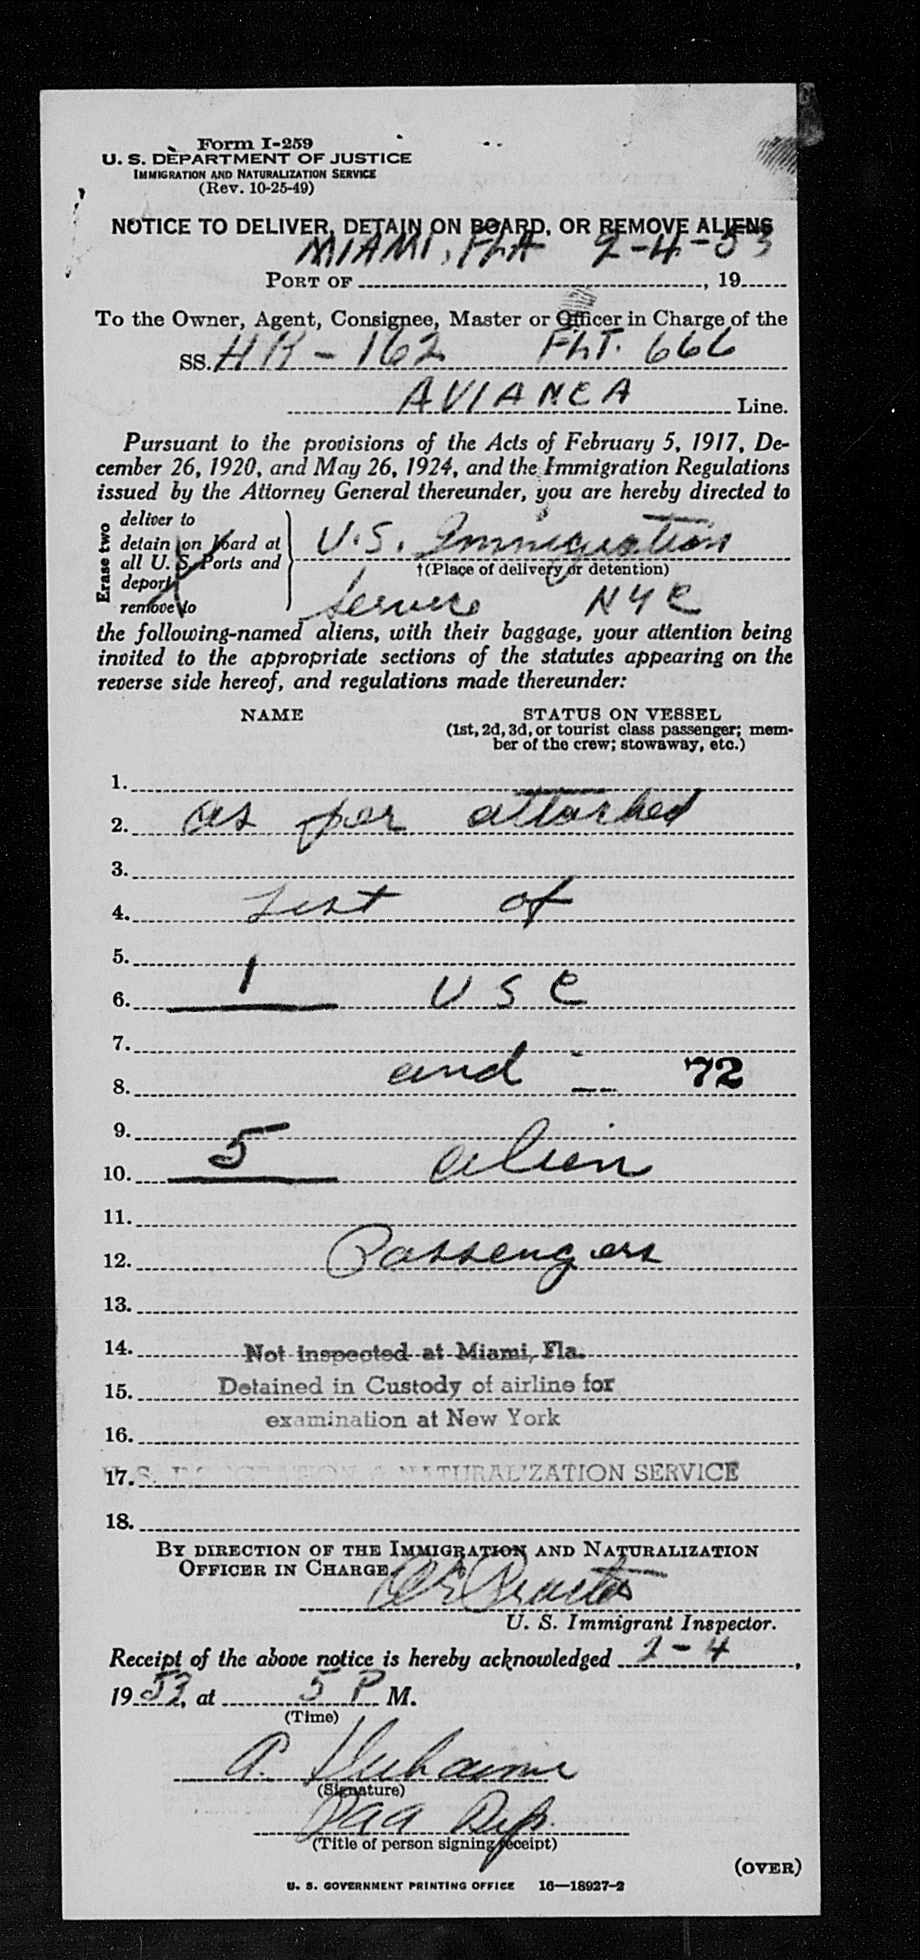 Form I-259
U. S. DEPARTMENT OF JUSTICE
IMMIGRATION AND NATURALIZATION SERVICE
(Rev. 10-25-49)
NOTICE TO DELIVER, DETAIN ON BOARD, OR REMOVE ALIENS
MIAMI, FLA 2-4-53
PORT OF , 19
To the Owner, Agent, Consignee, Master or Officer in Charge of the
SS. HK-162 FLT. 666
AVIANCA Line.
Pursuant to the provisions of the Acts of February 5, 1917, De-
cember 26, 1920, and May 26, 1924, and the Immigration Regulations
issued by the Attorney General thereunder, you are hereby directed to
Erase two
deliver to
detain on board at
all U. S. Ports and
deport
remove to
U.S. Immigration
†(Place of delivery or detention)
Service NYC
the following-named aliens, with their baggage, your attention being
invited to the appropriate sections of the statutes appearing on the
reverse side hereof, and regulations made thereunder:
NAME STATUS ON VESSEL
(1st, 2d, 3d, or tourist class passenger; mem-
ber of the crew; stowaway, etc.)
1.
2. as per attached
3.
4. List of
5.
6. 1 USC
7.
8. and 72
9.
10. 5 alien
11.
12. Passengers
13.
14. Not inspected at Miami, Fla.
15. Detained in Custody of airline for
examination at New York
16.
17. U.S. IMMIGRATION & NATURALIZATION SERVICE
18.
BY DIRECTION OF THE IMMIGRATION AND NATURALIZATION
OFFICER IN CHARGE
Proctor
U. S. Immigrant Inspector.
Receipt of the above notice is hereby acknowledged 2-4,
19 53, at 5 P M.
(Time)
A.
(Signature)
Paa Rep.
(Title of person signing receipt)
(OVER)
U. S. GOVERNMENT PRINTING OFFICE 16—18927-2